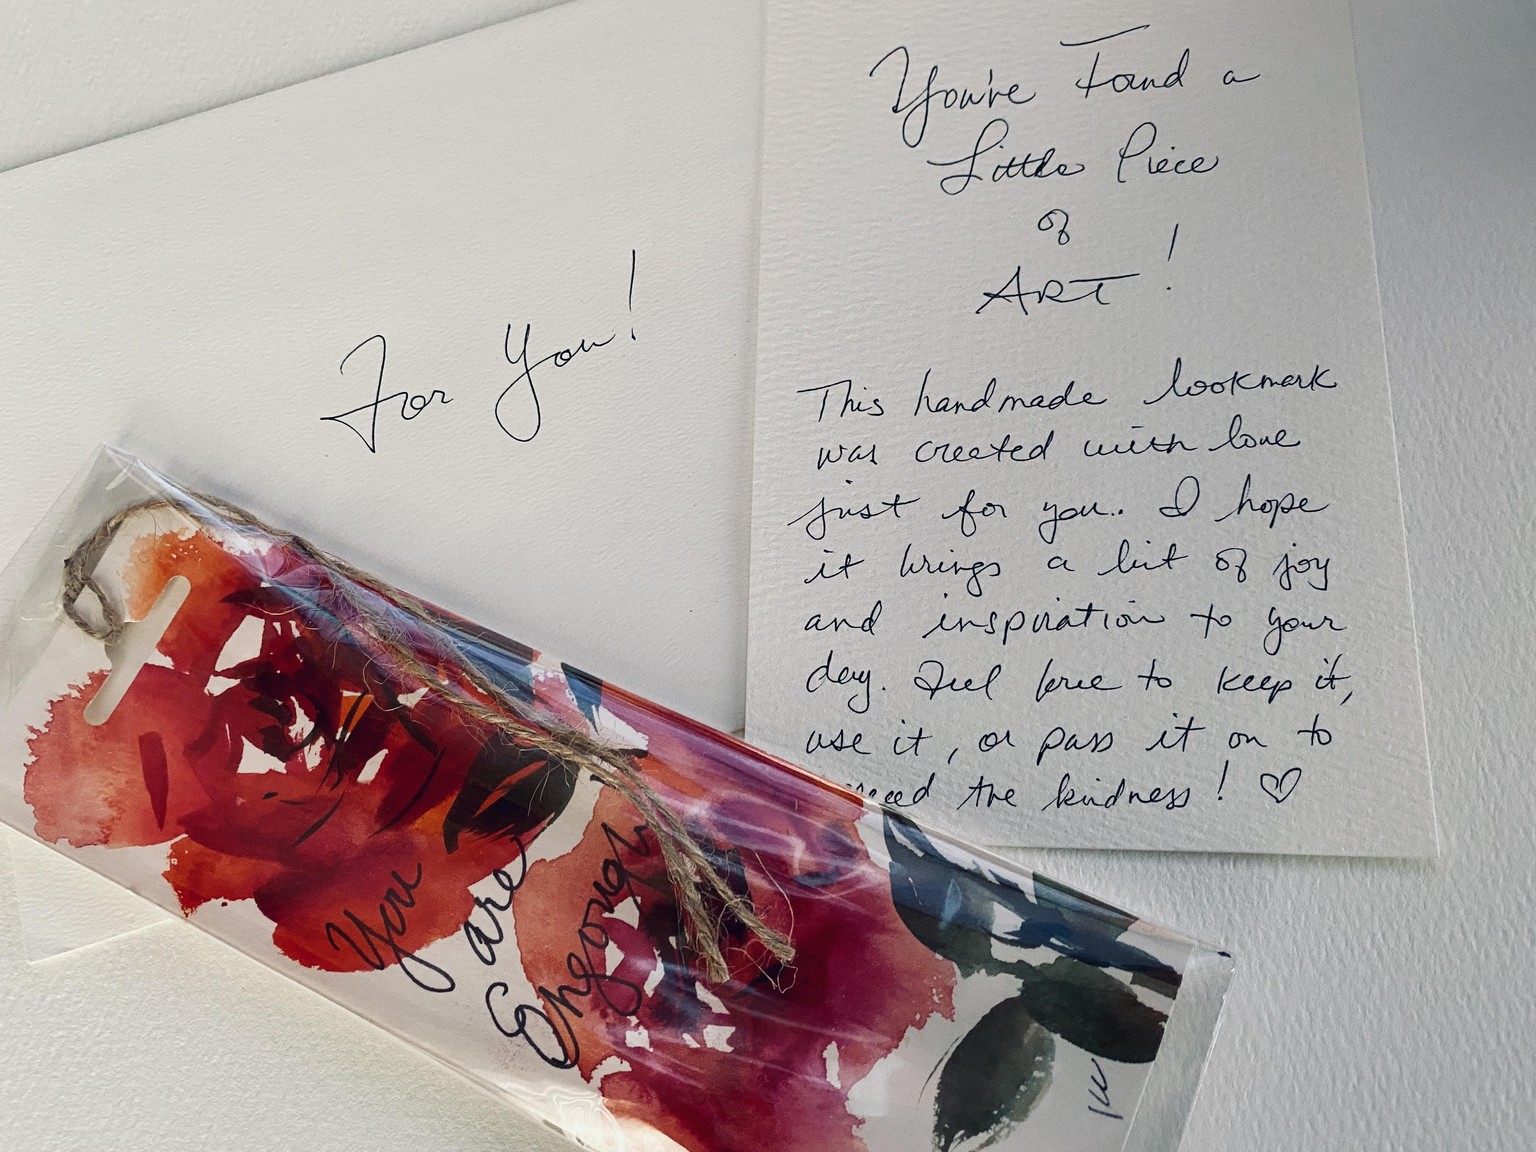 For You!
You've Found a
Little Piece
of
ART!
This handmade bookmark
was created with love
just for you.. I hope
it brings a bit of joy
and inspiration to your
day. Feel free to keep it,
use it, or pass it on to
the kindness! ♡
You
are
Enough